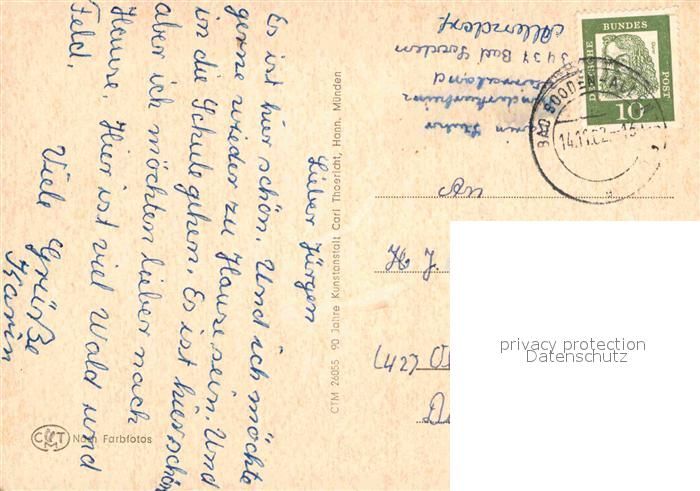 Lieber Jürgen
Es ist hier schön. Und ich möchte
gerne wieder zu Hause sein. Und
in die Schule gehen. Es ist hier schön
aber ich möchten lieber nach
Hause. Hier ist viel Wald und
Feld.
Viele Grüße
Karin
CTM 26055 90 Jahre Kunstanstalt Carl Thoericht, Hann. Münden
CTM Nach Farbfotos
Kinderheim
3437 Bad Sooden
Allendorf
DEUTSCHE BUNDESPOST
Dürer
10
BAD SOODEN-
An
H J.
(427)
privacy protection
Datenschutz